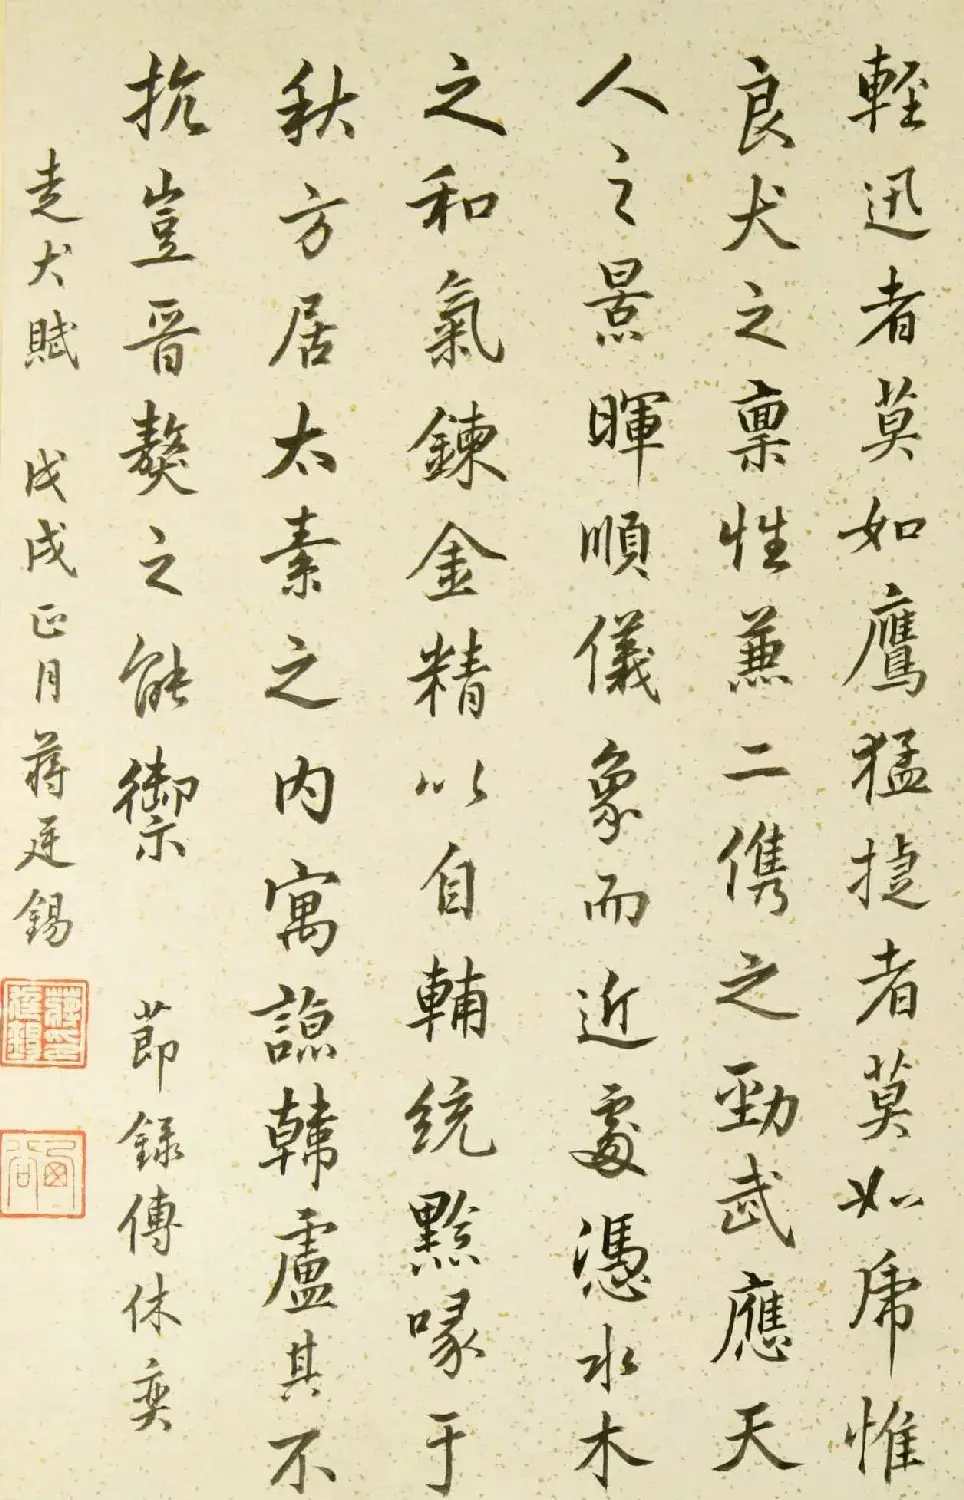 輕迅者莫如鷹猛捷者莫如虎惟
良犬之禀性兼二儁之勁武應天
人之景暉順儀象而近處憑水木
之和氣鍊金精以自輔統黔喙于
秋方居太素之内寓諒韓盧其不
抗豈晋獒之能禦 節録傅休奕
走犬賦 戊戌正月蔣廷錫
蔣廷錫印
酉谷